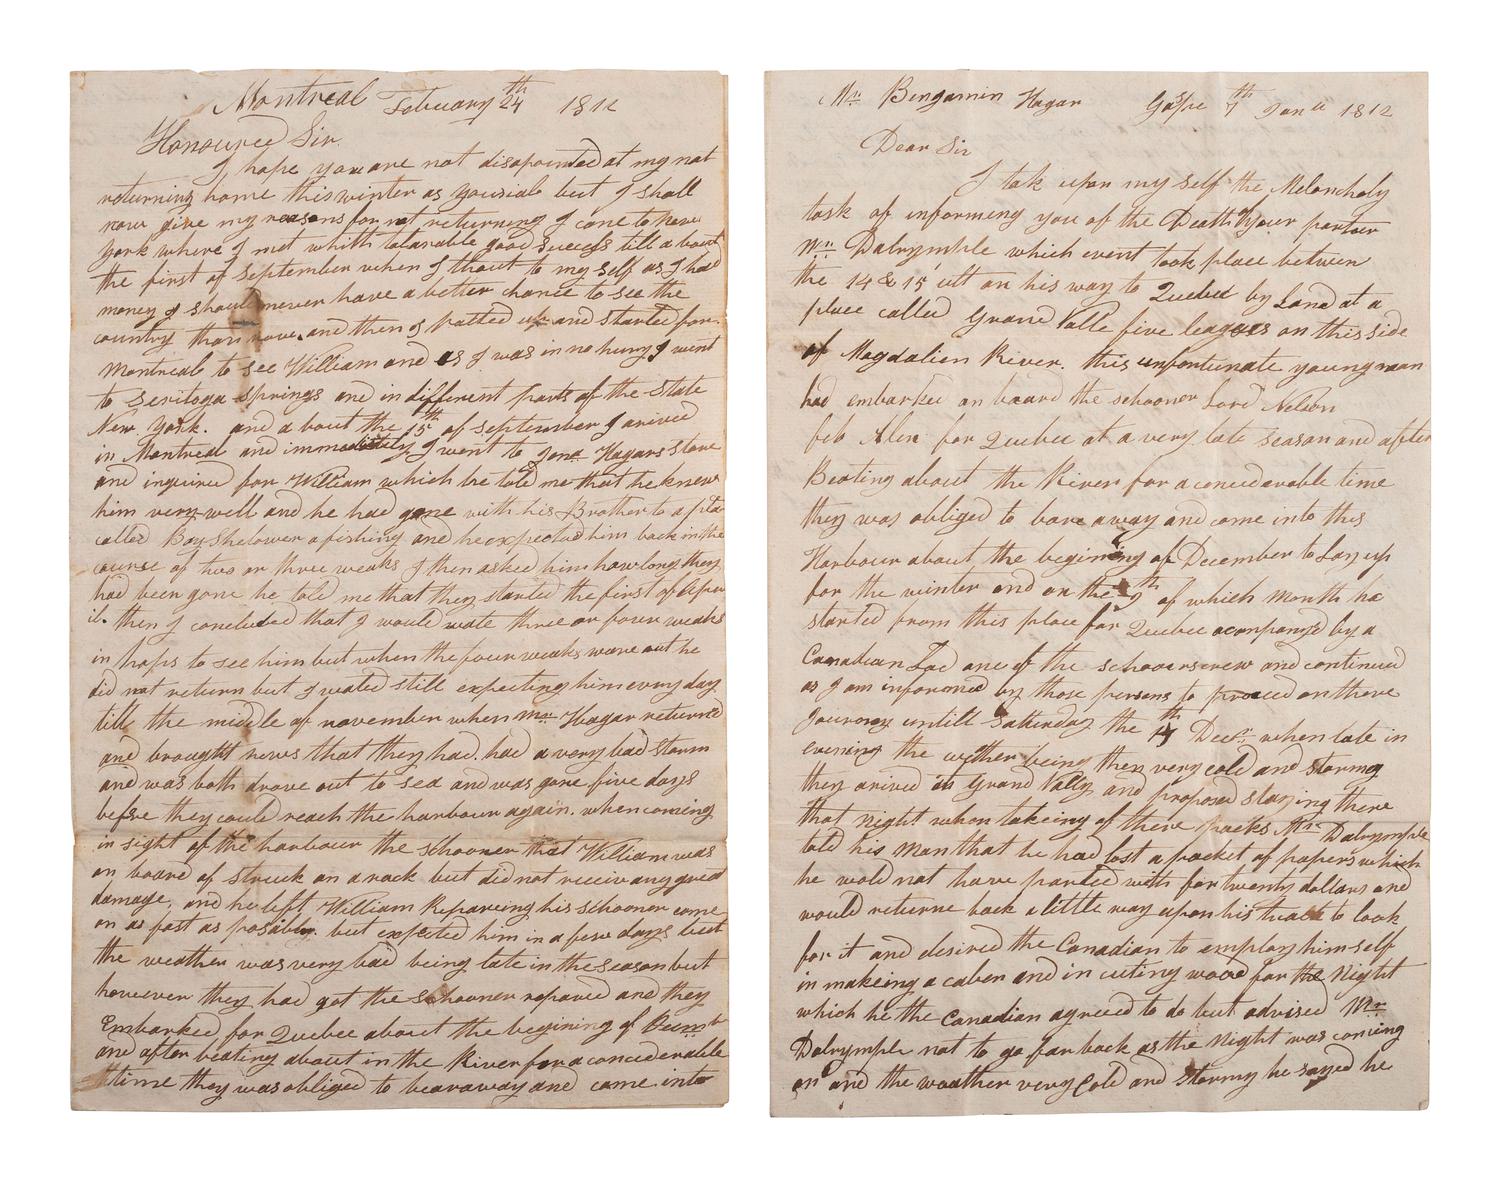 Montreal February 24th 1812
Honoured Sir.
I hope you are not disapointed at my not
returning home this winter as yousial but I shall
now give my reasons for not returning I come to New
York where I met whith tolarable good success till a bout
the first of September when I thout to my self as I had
money I should never have a better chance to see the
country than now. and then I patted up and started for.
Montreal to see William and as I was in no hurry I went
to Seritoga Springs and in different parts of the State
New York. and a bout the 15th of September I arived
in Montreal and immediately I went to Jona. Hagars Store
and inquired for William which he told me that he knew
him very well and he had gone with his Brother to a pla
called Bay Shelower a fishing and he expected him back in the
course of two or three weaks I then asked him how long they
had been gone he told me that they started the first of Apr
il. then I concluded that I would wate three or four weaks
in hops to see him but when the four weaks ware out he
did not return but I wated still expecting him every day
till the middle of november when Mr. Hagar returned
and brought news that they had. had a very bad storm
and was both drove out to sea and was gone five days
before they could reach the harbour again. when coming
in sight of the harbour the schooner that William was
on board of struck on a rock but did not receiv any great
damage, and he left William Repareing his schooner come
on as fast as posably. but expected him in a few days but
the weather was very bad being late in the season but
however they had got the schooner repared and they
Embarked for Quebec about the begining of Decmbr
and after beating about in the River for a conciderable
time they was obliged to bear away and come into
Mr. Bengamin Hagar Gaspe 7th Janu 1812
Dear Sir
I tak upon my self the Melancholy
task of informing you of the Death of your partner
Mr. Dalrymple which event took place betwen
the 14 & 15 ult on his way to Quebec by Land at a
place called Grand Valle five leagues on this side
of Magdalien River. this unfortunate young man
had embarked on board the schooner Lord Nelson
feb Alen for Quebec at a very late season and after
Beating about the River for a conciderable time
they was obliged to bare away and come into this
Harbour about the begining of December to Lay up
for the winter and on the 9th of which month he
started from this place for Quebec acompanyed by a
Canadian Lad one of the schooners crew and continued
as I am informed by those persons to proceed on there
Journey untill Satturday the 14th Decr. when late in
evening the wether being then very cold and stormy
they arived in Grand Vally and proposed staying there
that night when takeing of there packs Mr. Dalrymple
told his man that he had lost a packet of papers which
he wold not have parted with for twenty dollars and
would returne back a little way upon his track to look
for it and desired the Canadian to employ himself
in makeing a caben and in cuting wood for the night
which he the Canadian agreed to do but advised Mr.
Dalrymple not to go far back as the night was coming
on and the weather very Cold and stormy he sayed he